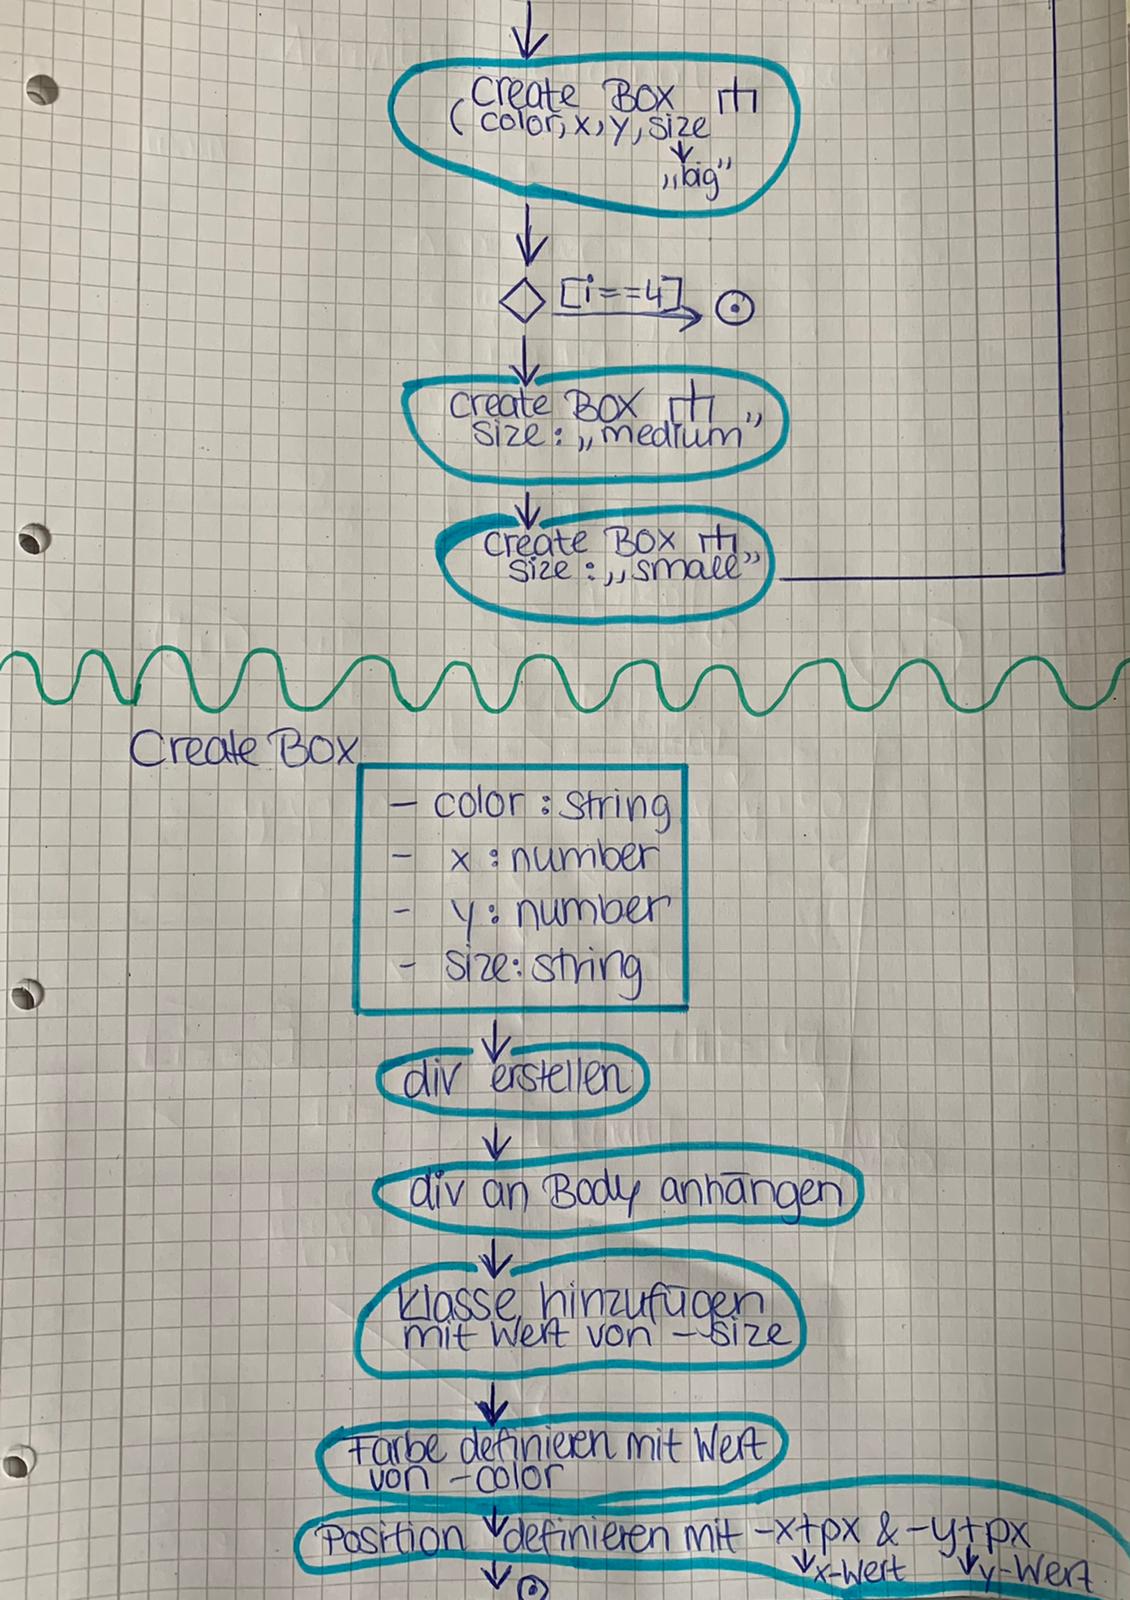 create BOX
( color, x, y, size
„big”
[i==4]
create BOX
size: „medium”
create BOX
size: „small”
Create BOX
– color : string
– x : number
– y : number
– size : string
div erstellen
div an Body anhängen
Klasse hinzufügen
mit Wert von – size
Farbe definieren mit Wert
von – color
Position definieren mit –x+px & –y+px
x-Wert y-Wert